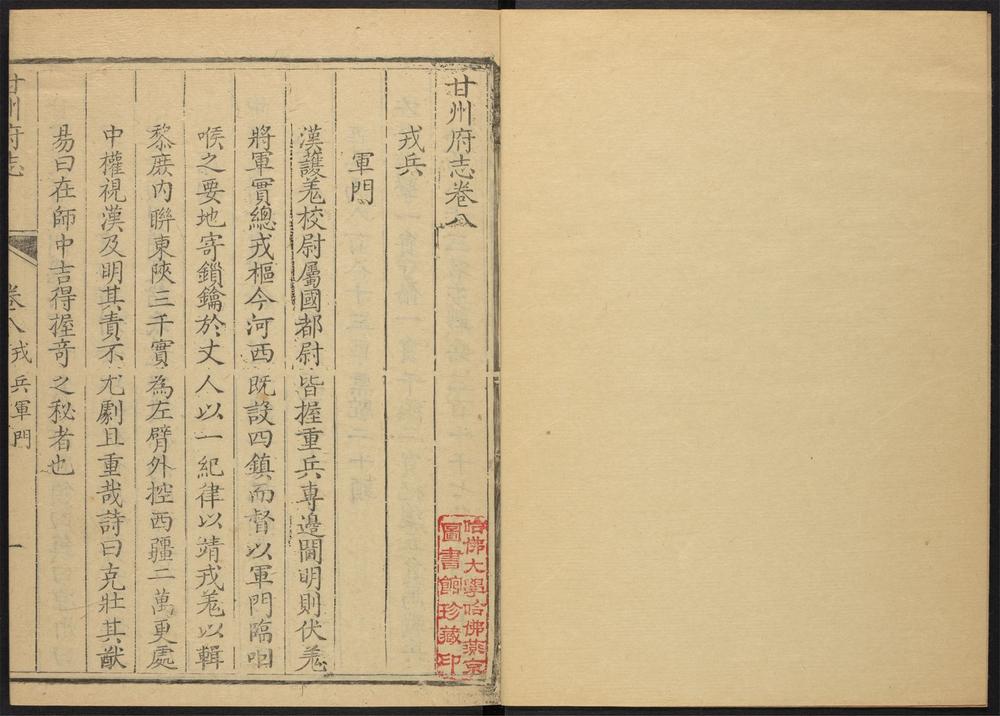 甘州府志卷八
戎兵
軍門
漢護羌校尉屬國都尉皆握重兵專邊閫明則伏羌
將軍實總戎樞今河西既設四鎮而督以軍門臨咽
喉之要地寄鎖鑰於丈人以一紀律以靖戎羌以輯
黎庶内聯東陝三千實為左臂外控西疆二萬更處
中權視漢及明其責不尤劇且重哉詩曰克壯其猷
易曰在師中吉得握奇之秘者也
甘州府志
卷八 戎兵 軍門
一
哈佛大學哈佛燕京
圖書館珍藏印